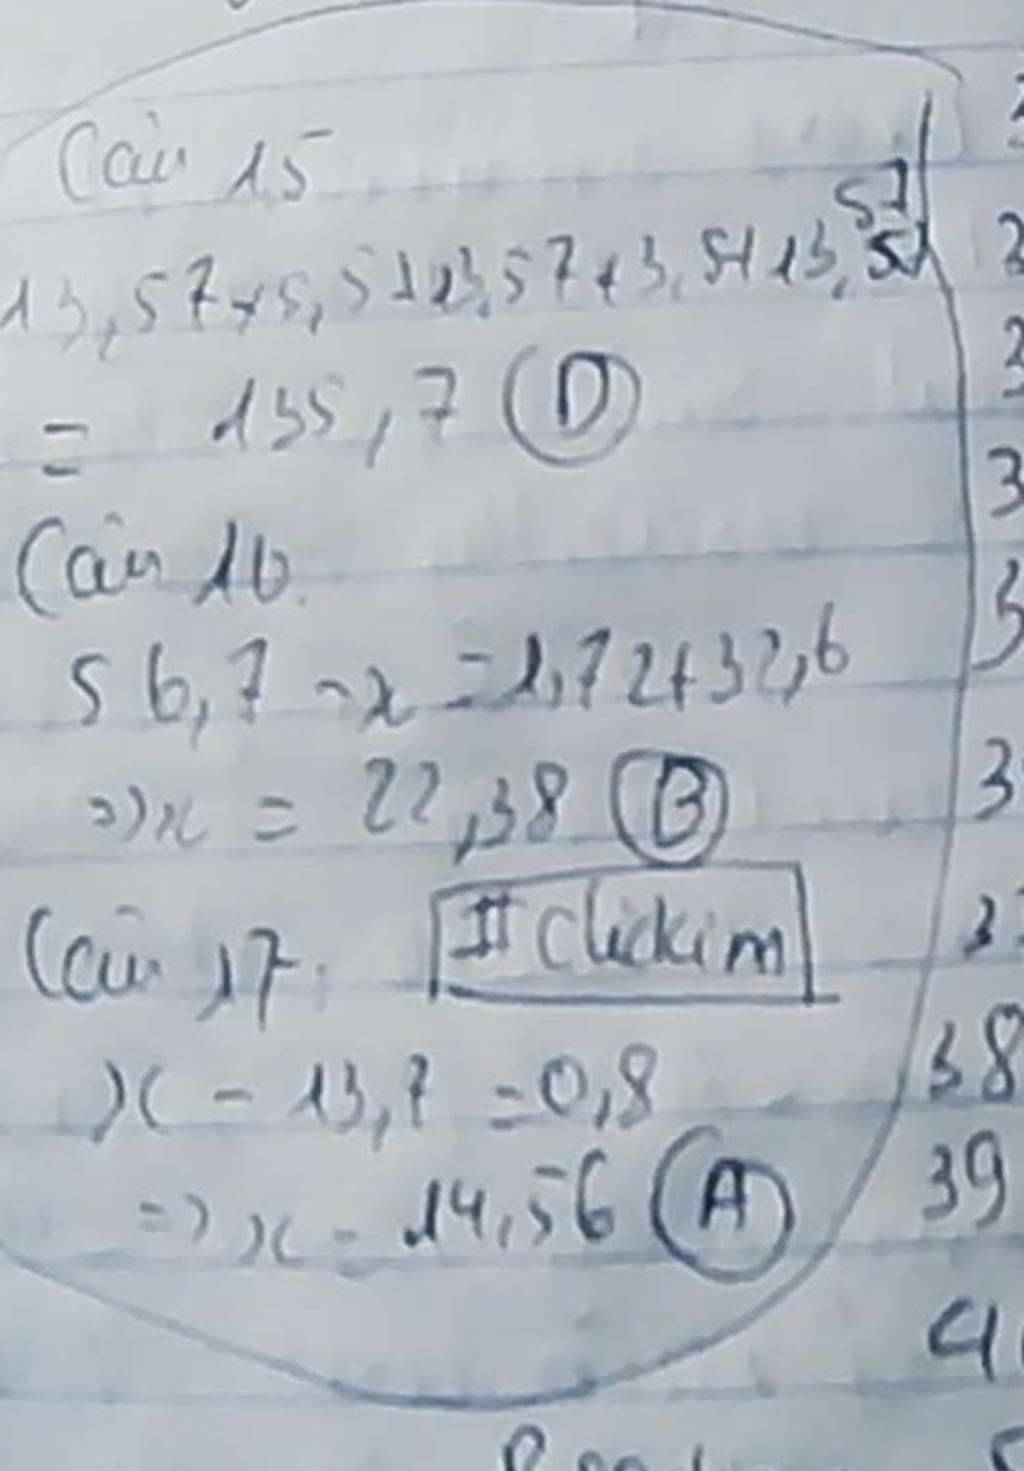 Câu 15
13,57 x 5,5 + 13,57 + 3,5 + 13,57
= 135,7 D
Câu 16.
56,7 - x = 1,72 + 32,6
=> x = 22,38 B
Câu 17.
#clickim
x - 13,7 = 0,8
=> x = 14,56 A
3
38
39